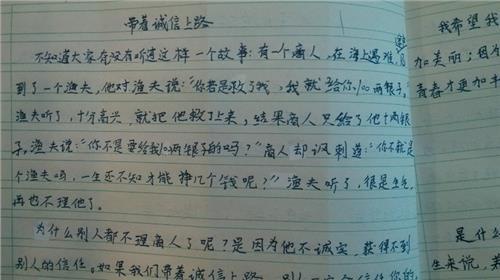 带着诚信上路
不知道大家有没有听过这样一个故事:有一个商人,在海上遇难,遇
到了一个渔夫,他对渔夫说:“你若是救了我,我就给你100两银子。”
渔夫听了,十分高兴,就把他救了上来,结果商人只给了他十两银
子。渔夫说:“你不是要给我100两银子的吗?”商人却讽刺道:“你不就是
个渔夫吗,一生还不知才能挣几个钱呢?”渔夫听了,很是生气,
再也不理他了。
为什么别人都不理商人了呢?是因为他不诚实,获得不到
别人的信任。如果我们带着诚信上路,别人一定会信任你的
我希望我
加美丽;因为
青春才更加
是什么
生来说,